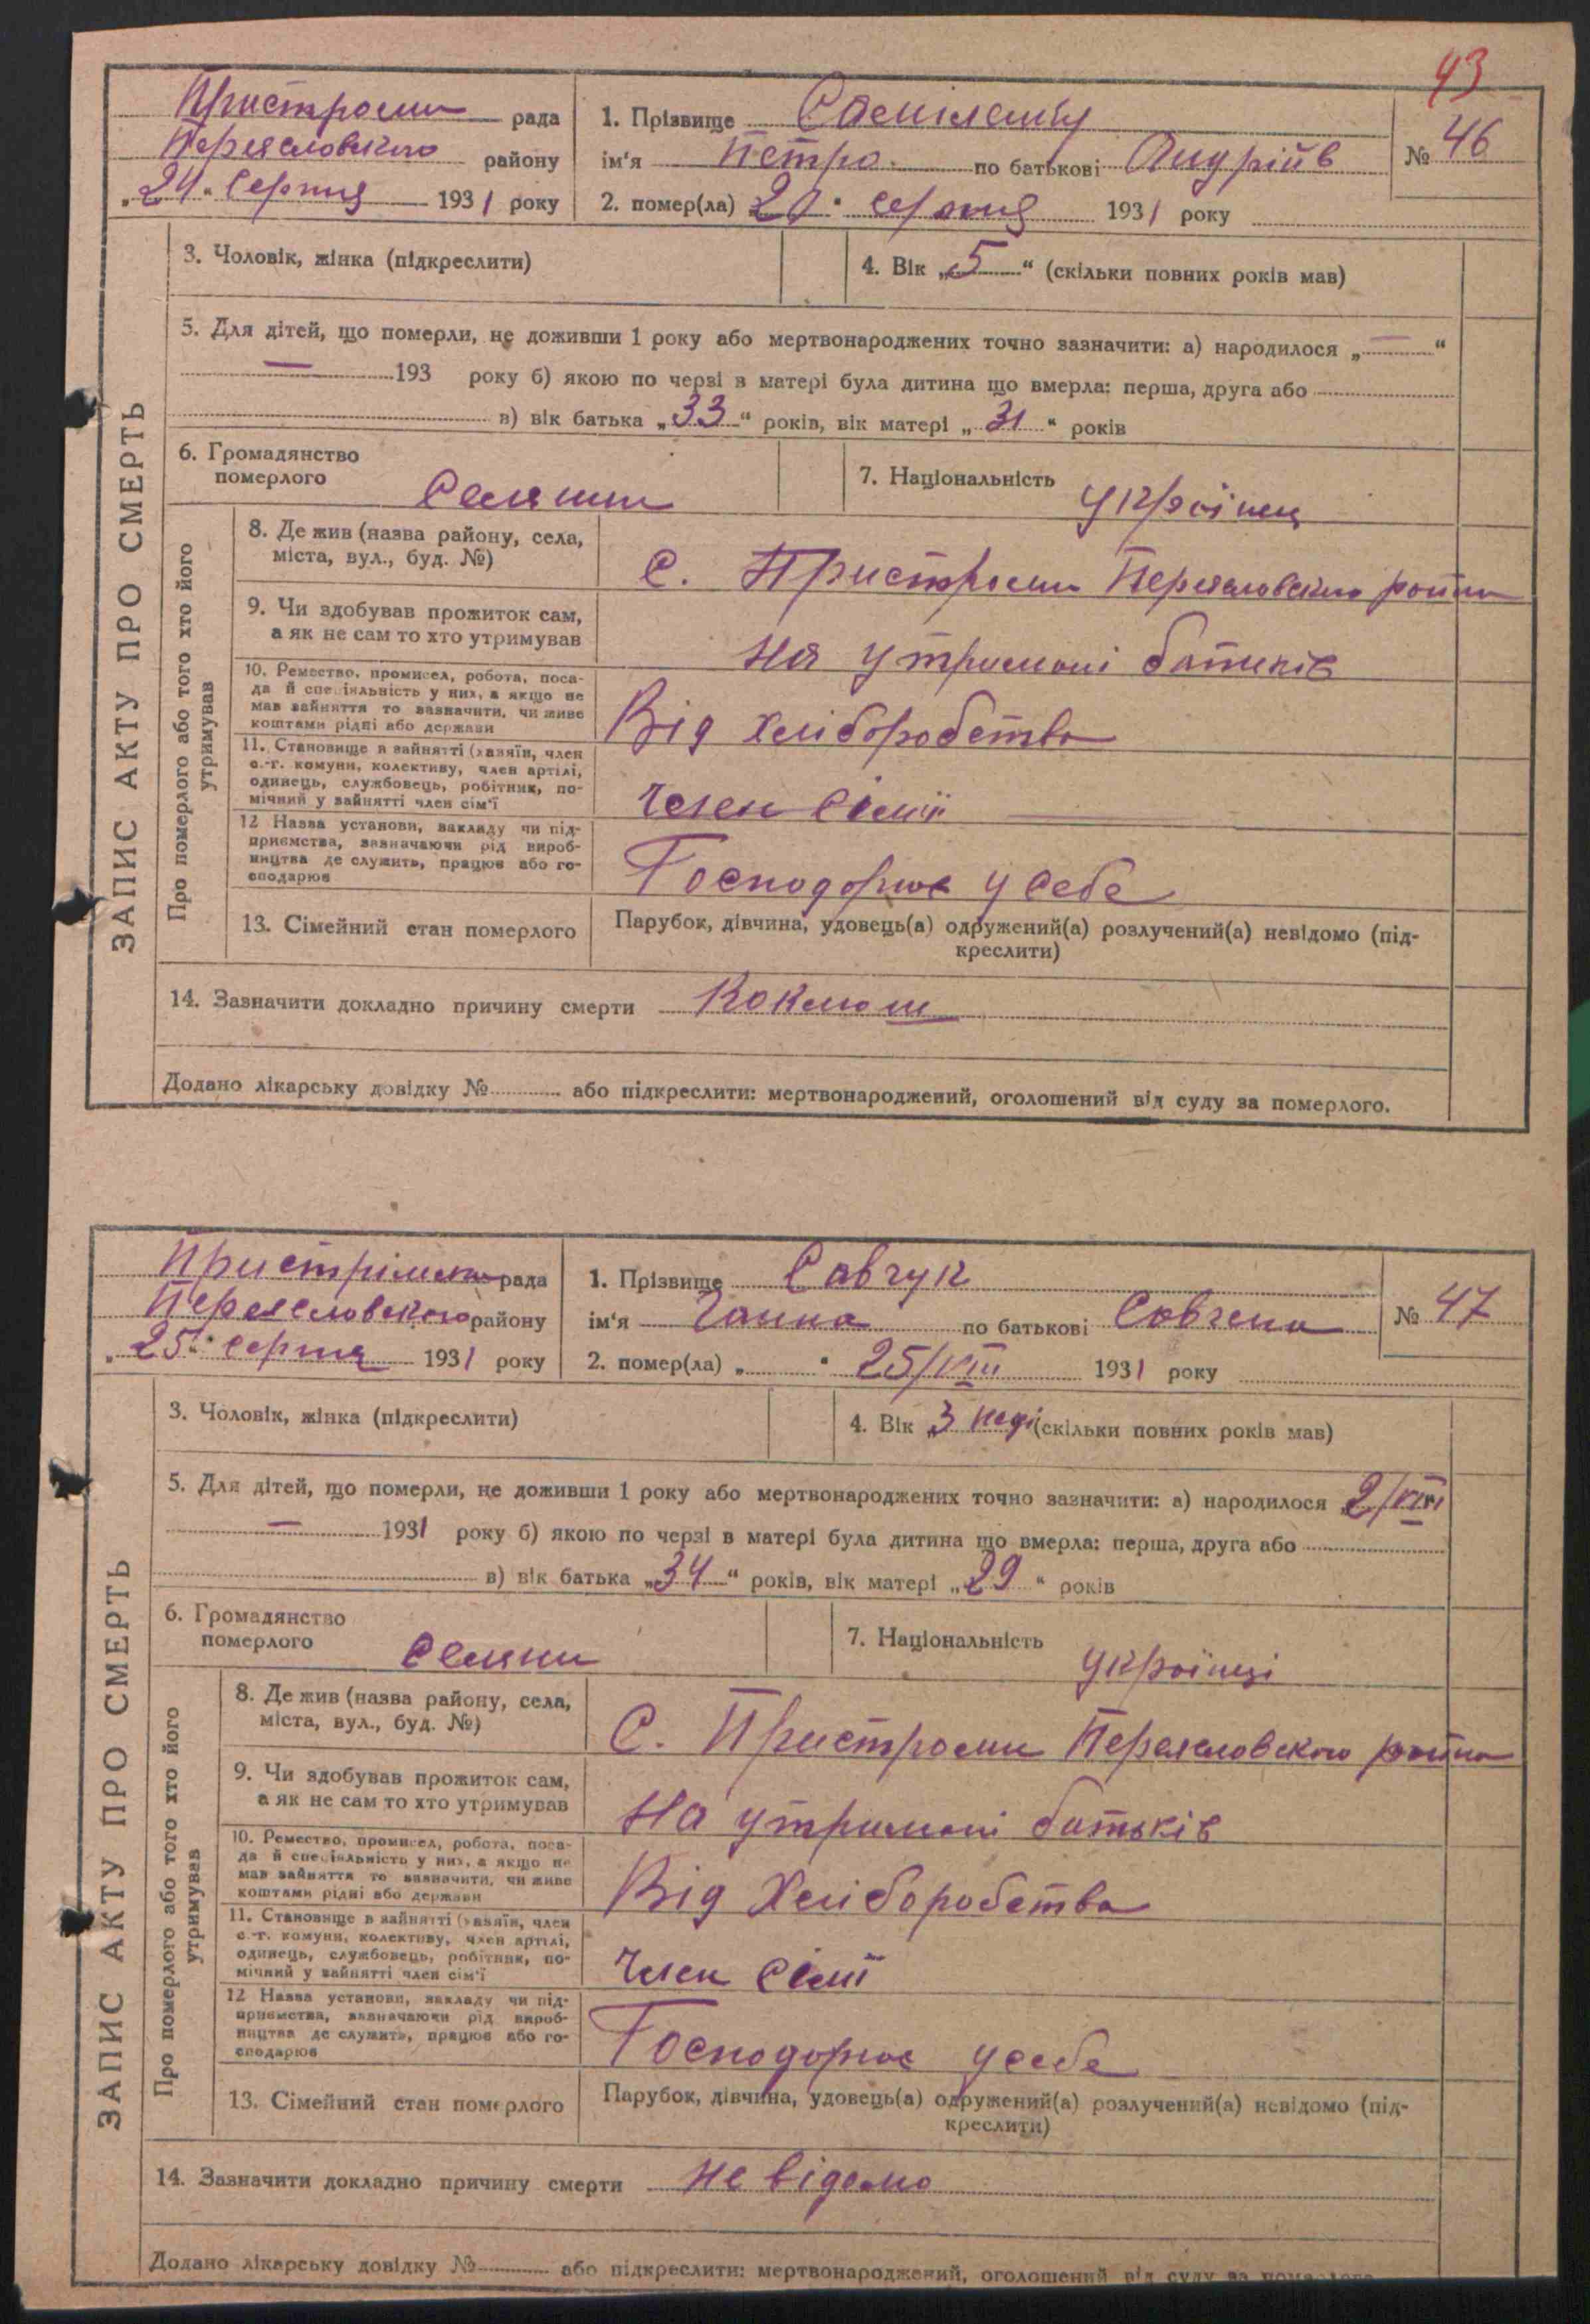 43
Пристроми рада
Переяславського району
„24“ Серпня 1931 року
1. Прізвище
ім‘я Петро по батькові Андріїв
№ 46
2. помер(ла) серпня 1931 року
ЗАПИС АКТУ ПРО СМЕРТЬ
3. Чоловік, жінка (підкреслити)
4. Вік „5“ (скільки повних років мав)
5. Для дітей, що померли, не доживши 1 року або мертвонароджених точно зазначити: а) народилося „—“
— 193 року б) якою по черзі в матері була дитина що вмерла: перша, друга або
в) вік батька „33“ років, вік матері „31“ років
6. Громадянство
померлого Селянин
7. Національність Українец
Про померлого або того хто його
утримував
8. Де жив (назва району, села,
міста, вул., буд. №)
С. Пристроми Переяславського району
9. Чи здобував прожиток сам,
а як не сам то хто утримував
на утримані батьків
10. Ремество, промисел, робота, поса-
да й спеціяльність у них, а якщо не
мав зайняття то зазначити, чи живе
коштами рідні або держави
Від хліборобства
11. Становище в зайнятті (хазяїн, член
с.-г. комуни, колективу, член артілі,
одинець, службовець, робітник, по-
мічний у зайнятті член сім‘ї
Член сімії
12 Назва установи, закладу чи під-
приємства, зазначаючи рід вироб-
ництва де служить, працює або го-
сподарює
Господорює у себе
13. Сімейний стан померлого
Парубок, дівчина, удовець(а) одружений(а) розлучений(а) невідомо (під-
креслити)
14. Зазначити докладно причину смерти Коклюш
Додано лікарську довідку № або підкреслити: мертвонароджений, оголошений від суду за померлого.
Пристрімська рада
Переяславського району
„25“ Серпня 1931 року
1. Прізвище Савчук
ім‘я Ганна по батькові
№ 47
2. помер(ла) „ “ 25/VIII 1931 року
ЗАПИС АКТУ ПРО СМЕРТЬ
3. Чоловік, жінка (підкреслити)
4. Вік „3 неді (скільки повних років мав)
5. Для дітей, що померли, не доживши 1 року або мертвонароджених точно зазначити: а) народилося „2/VIII
— 1931 року б) якою по черзі в матері була дитина що вмерла: перша, друга або
в) вік батька „34“ років, вік матері „29“ років
6. Громадянство
померлого Селяни
7. Національність українці
Про померлого або того хто його
утримував
8. Де жив (назва району, села,
міста, вул., буд. №)
С. Пристроми Переяславского району
9. Чи здобував прожиток сам,
а як не сам то хто утримував
На утримані батьків
10. Ремество, промисел, робота, поса-
да й спеціяльність у них, а якщо не
мав зайняття то зазначити, чи живе
коштами рідні або держави
Від Хліборобства
11. Становище в зайнятті (хазяїн, член
с.-г. комуни, колективу, член артілі,
одинець, службовець, робітник, по-
мічний у зайнятті член сім‘ї
Член сімії
12 Назва установи, закладу чи під-
приємства, зазначаючи рід вироб-
ництва де служить, працює або го-
сподарює
Господорює у себе
13. Сімейний стан померлого
Парубок, дівчина, удовець(а) одружений(а) розлучений(а) невідомо (під-
креслити)
14. Зазначити докладно причину смерти не відомо
Додано лікарську довідку № або підкреслити: мертвонароджений, оголошений від суду за померлого